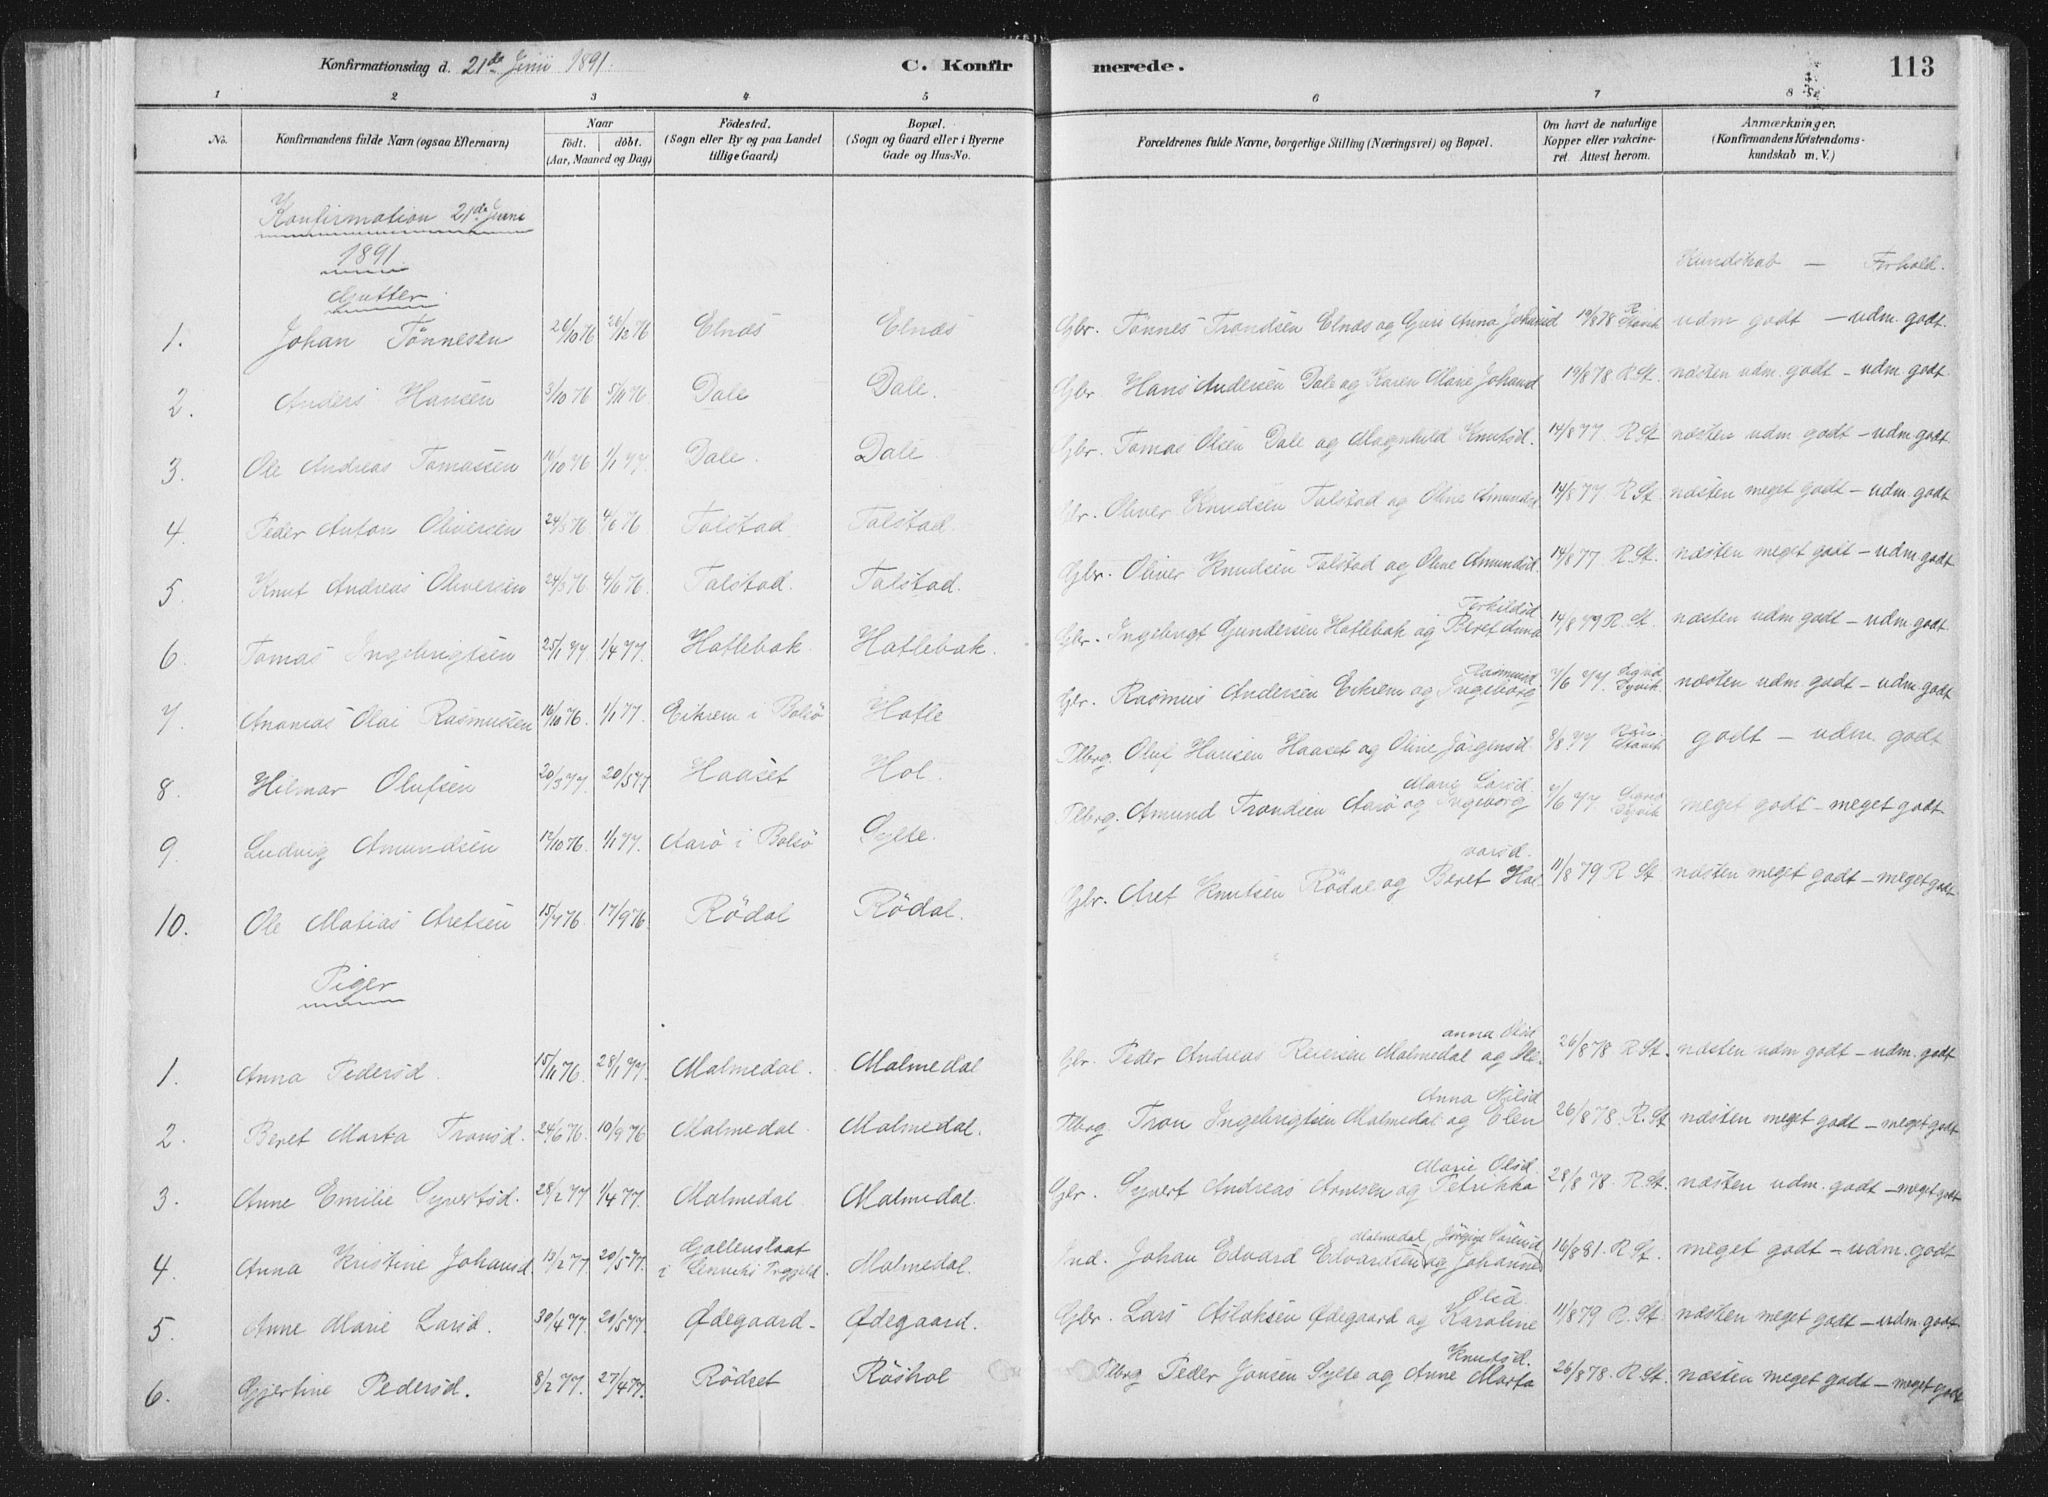 Konfirmationsdag d. 21de Juni 1891.
C. Konfir merede. 113
1 2 3 4 5 6 7 8
No. Konfirmandens fulde Navn (ogsaa Efternavn) Naar födt. döbt. (Aar, Maaned og Dag) Födested. (Sogn eller By og paa Landet tillige Gaard) Bopæl. (Sogn og Gaard eller i Byerne Gade og Hus-No. Forældrenes fulde Navne, borgerlige Stilling (Næringsvei) og Bopæl. Om havt de naturlige Kopper eller vakcineret. Attest herom. Anmærkninger. (Konfirmandens Kristendomskundskab m. V.)
Konfirmation 21de Juni
1891
Kundskab — Forhold.
Gutter
1. Johan Tönnesen 26/10 76 26/12 76 Elnæs Elnæs Gbr. Tönnes Trondsen Elnæs og Guri Anna Johansd 19/8 78 R Stavik udm godt — udm. godt.
2. Anders Hansen 3/10 76 5/11 76 Dale Dale. Gbr. Hans Andersen Dale og Karen Marie Johansd 19/8 78 R St. næsten udm. godt — udm. godt.
3. Ole Andreas Tomassen 14/10 76 1/1 77. Dale. Dale Gbr. Tomas Olsen Dale og Magnhild Knutsd. 14/8 77. R St næsten udm. godt — udm. godt
4. Peder Anton Oliversen 24/3 76 4/6 76 Talstad. Talstad. Gbr. Oliver Knudsen Talstad og Oline Amundsd 14/8 77 R St. næsten meget godt — udm. godt
5. Knut Andreas Oliversen 24/3 76. 4/6 76. Talstad. Talstad. Gbr. Oliver Knudsen Talstad og Oline Amundsd. 14/8 77. R. St. næsten meget godt — udm. godt
6. Tomas Ingebrigtsen 25/1 77 1/4 77. Hatlebak. Hatlebak. Gbr. Ingebrigt Gundersen Hatlebak og Beret Anna Torkildsd 14/8 79 R. St. næsten udm godt — udm. godt
7. Ananias Olai Rasmussen 16/10 76. 1/1 77. Eikrem i Bolsö Hatle Gbr. Rasmus Andersen Eikrem og Ingeborg Rasmusd 7/6 77. Sigvd Syvik. næsten udm. godt — udm. godt
8. Hilmar Olufsen 20/3 77. 20/5 77 Haaset Hol. Flborg. Oluf Hansen Haaset og Oline Jörgensd. 3/8 77 Stavik godt — udm. godt
9. Ludvig Amundsen 12/10 76. 1/1 77. Aarö i Bolsö Sylte. Flborg. Amund Trondsen Aarö og Ingeborg Marie Larsd. 7/6 77 Syvik meget godt — meget godt
10. Ole Matias Aretsen 15/7 76. 17/9 76. Rödal Rödal. Gbr. Aret Knutsen Rödal og Beret Halvarsd. 11/8 79 R St næsten meget godt — meget godt
Piger
1. Anna Pedersd. 15/11 76. 28/1 77. Malmedal. Malmedal Gbr. Peder Andreas Reiersen Malmedal og Oleanna Olsd 26/8 78 R St. næsten udm godt — udm. godt
2. Beret Marta Tronsd. 24/6 76. 10/9 76 Malmedal. Malmedal. Flborg. Tron Ingebrigtsen Malmedal og Elen Anna Nilsd 26/8 78. R. St næsten meget godt — meget godt
3. Anne Emilie Syvertsd. 28/2 77 1/4 77. Malmedal. Malmedal. Gbr. Syvert Andreas Arnesen og Petrikka Marie Olsd. 28/8 78. R St. næsten udm. godt — meget godt
4. Anna Kristine Johansd. 13/2 77. 20/5 77. i Malmedal. Ind. Johan Edvard Edvardsen Malmedal og Johanne Jörgine Sörensd 16/8 81. R St. meget godt — udm. godt
5. Anne Marie Larsd. 30/4 77. 20/5 77. Ødegaard. Ødegaard. Gbr. Lars Aslaksen Ødegaard og Karoline Olsd. 11/8 79 R. St. næsten meget godt — udm. godt
6. Gjertine Pedersd. 8/2 77. 27/4 77. Rödset Röshol Flborg Peder Jonsen Sylte og Anne Marta Knutsd. 26/8 78. R St. næsten meget godt — meget godt